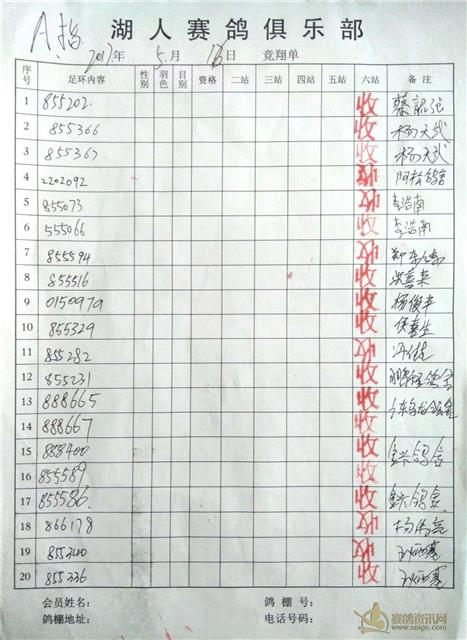 A指
湖人赛鸽俱乐部
2017年 5月 13日 竞翔单
序号 足环内容 性别 羽色 目别 资格 二站 三站 四站 五站 六站 备注
1 855202 收
2 855366 收 杨天武
3 855367 收 杨天武
4 2202092 收
5 855073 收 李浩南
6 555066 收 李浩南
7 855594 收
8 855516 收
9 0150979 收 杨俊丰
10 855329 收 侯喜生
11 855282 收
12 855231 收
13 888665 收
14 888667 收
15 888400 收
16 855589 收
17 855586 收
18 866178 收
19 855340 收
20 855336 收
会员姓名: 鸽棚号:
鸽棚地址: 电话号码:
赛鸽资讯网
www.saige.com